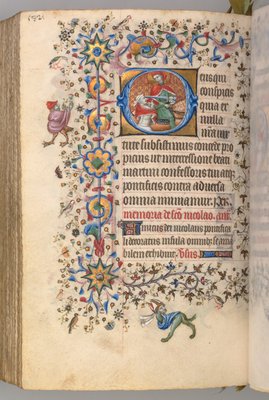 eus qui
conspicis
quia ex
nulla
nostra uir
tute subsistimus concede pro
picius ut intercessione beati
martini confessoris tui atqz
pontificis contra aduersa
omnia muniamur. Per.
memoria de sco nicolao. an.
micus dei nicolaus pontificali
decoratus insula omnibus se ama
bilem exhibuit. v̄sus.